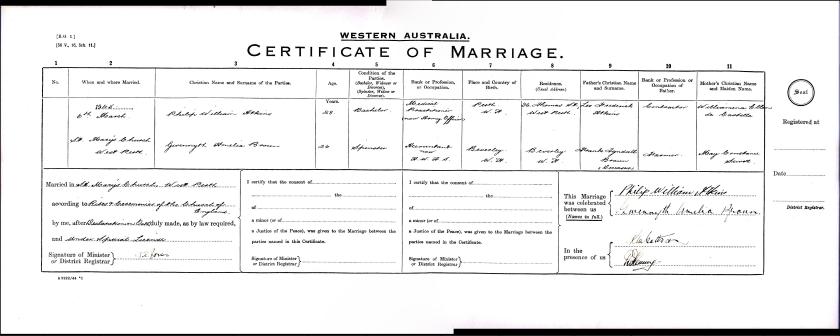 [R.G 1]
[58 V., 16, Sch. 11.]
WESTERN AUSTRALIA.
CERTIFICATE OF MARRIAGE.
1 2 3 4 5 6 7 8 9 10 11
No.
When and where Married.
Christian Name and Surname of the Parties.
Age.
Condition of the Parties.
(Bachelor, Widower or Divorcee).
(Spinster, Widow or Divorcee).
Rank or Profession, or Occupation.
Place and Country of Birth.
Residence.
(Usual Address)
Father's Christian Name and Surname.
Rank or Profession, or Occupation of Father.
Mother's Christian Name and Maiden Name.
Years.
6th March
Philip William Atkins
28
Bachelor
Medical Practitioner
now Army Officer
Perth W.A.
Thomas St. West Perth
Leo Frederick Atkins
Contractor
Ellen
St. Mary's Church
West Perth
Gwennyth Amelia
26
Spinster
Accountant
now
Beverley W.A.
Beverley W.A.
Frank
Farmer
Mary Constance
Married in St. Mary's Church, West Perth
according to Rites & Ceremonies of the Church of England
by me, after Declaration duly made, as by law required,
and under Special Licence
Signature of Minister
or District Registrar
I certify that the consent of
the
of
a minor (or of
a Justice of the Peace), was given to the Marriage between the
parties named in this Certificate.
Signature of Minister
or District Registrar
I certify that the consent of
the
of
a minor (or of
a Justice of the Peace), was given to the Marriage between the
parties named in this Certificate.
Signature of Minister
or District Registrar
This Marriage
was celebrated
between us
(Names in full.)
Philip William Atkins
Gwennyth Amelia
In the
presence of us
Seal
Registered at
Date
District Registrar.